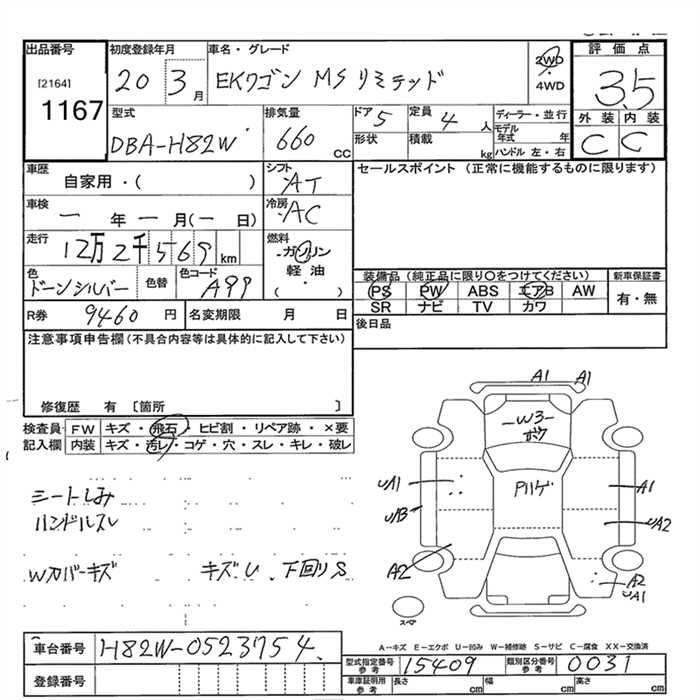 出品番号 初度登録年月 車名・グレード 評価点
[2164] 1167 20 3月 EKワゴン MSリミテッド 2WD 4WD 3.5
型式 排気量 ドア 定員 ディーラー・並行 外装 内装
DBA-H82W 660 CC 5 4人 モデル年式 年 C C
形状 積載 kg ハンドル 左・右
車歴 シフト セールスポイント (正常に機能するものに限ります)
自家用・( ) AT
車検 冷房
一年一月(一日) AC
走行 燃料
12万2千569km ガソリン
軽油
色 色替 色コード ( ) 装備品(純正品に限り〇をつけてください) 新車保証書
ドーンシルバー A99 PS PW ABS エアB AW 有・無
SR ナビ TV カワ
R券 9460円 名変期限 月 日 後日品
注意事項申告欄(不具合内容等は具体的に記入して下さい)
修復歴 有 [箇所 ]
検査員 FW キズ・飛石・ヒビ割・リペア跡・×要
記入欄 内装 キズ・汚レ・コゲ・穴・スレ・キレ・破レ
シートしみ
ハンドルスレ
Wカバーキズ キズU 下回りS
A1 A1
W3
ボケ
UA1 Pハゲ A1
UA3 UA2
A2 A2
UA1
スペア
A-キズ E-エクボ U-凹み W-補修跡 S-サビ C-腐食 XX-交換済
車台番号 H82W-0523754
型式指定番号 参考 15409 類別区分番号 参考 0031
登録番号 車庫証明用 参考 長さ cm 幅 cm 高さ cm